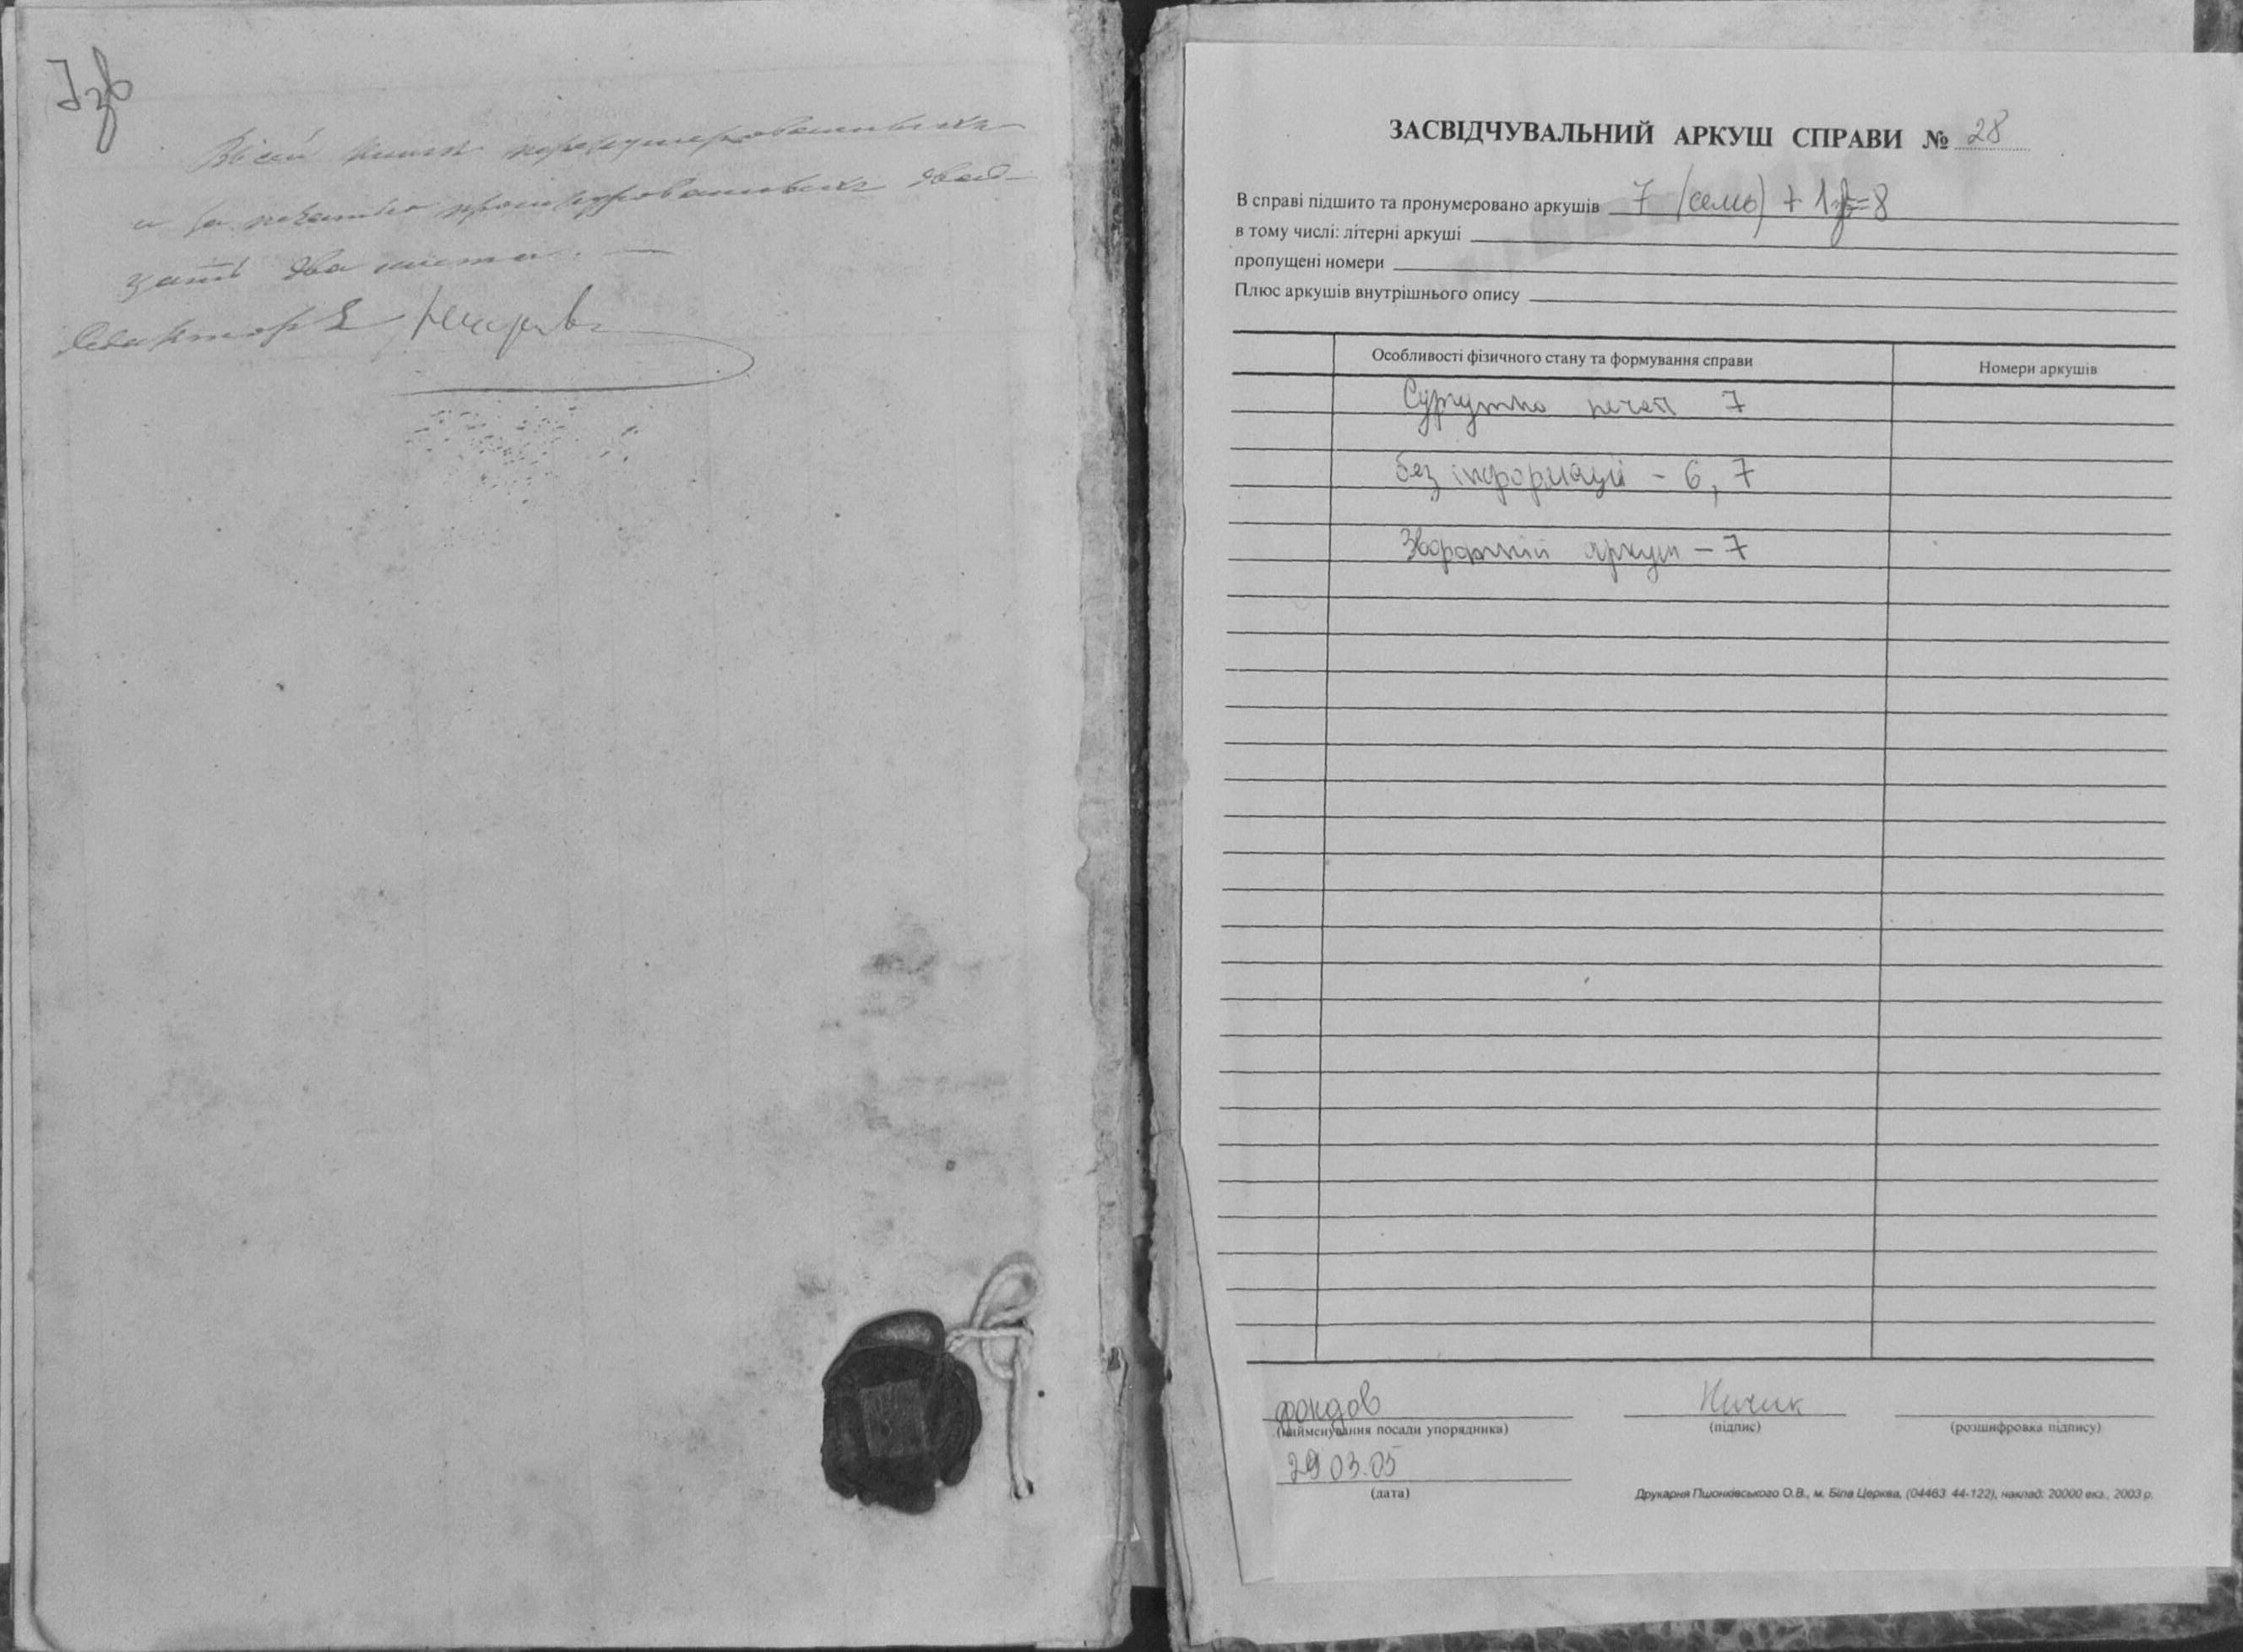 7зв
В сей книге перенумерованныхъ
и за печатью прошнурованныхъ двад-
цать два листа. —
ЗАСВІДЧУВАЛЬНИЙ АРКУШ СПРАВИ № 28
В справі підшито та пронумеровано аркушів 7 (семь) + 1зв=8
в тому числі: літерні аркуші
пропущені номери
Плюс аркушів внутрішнього опису
Особливості фізичного стану та формування справи
Номери аркушів
Сургутна печат 7
без інформації - 6, 7
Зворотній аркуш - 7
фондов
(найменування посади упорядника)
(підпис)
(розшифровка підпису)
29 03.05
(дата)
Друкарня Пшонківського О.В., м. Біла Церква, (04463 44-122), наклад: 20000 екз., 2003 р.